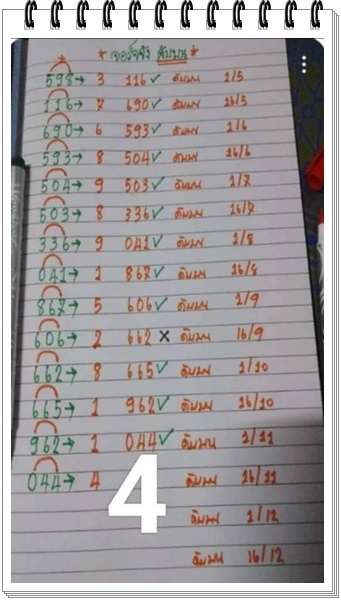 * เจอร์จริง ดับบน *
598→ 3 116✓ ดับบน 1/5
116→ 7 690✓ ดับบน 16/5
690→ 6 593✓ ดับบน 1/6
593→ 8 504✓ ดับบน 16/6
504→ 9 503✓ ดับบน 1/7
503→ 8 336✓ ดับบน 16/7
336→ 9 041✓ ดับบน 1/8
041→ 1 867✓ ดับบน 16/8
867→ 5 606✓ ดับบน 1/9
606→ 2 662 × ดับบน 16/9
662→ 8 665✓ ดับบน 1/10
665→ 1 962✓ ดับบน 16/10
962→ 1 044✓ ดับบน 1/11
044→ 4 4 ดับบน 16/11
ดับบน 1/12
ดับบน 16/12